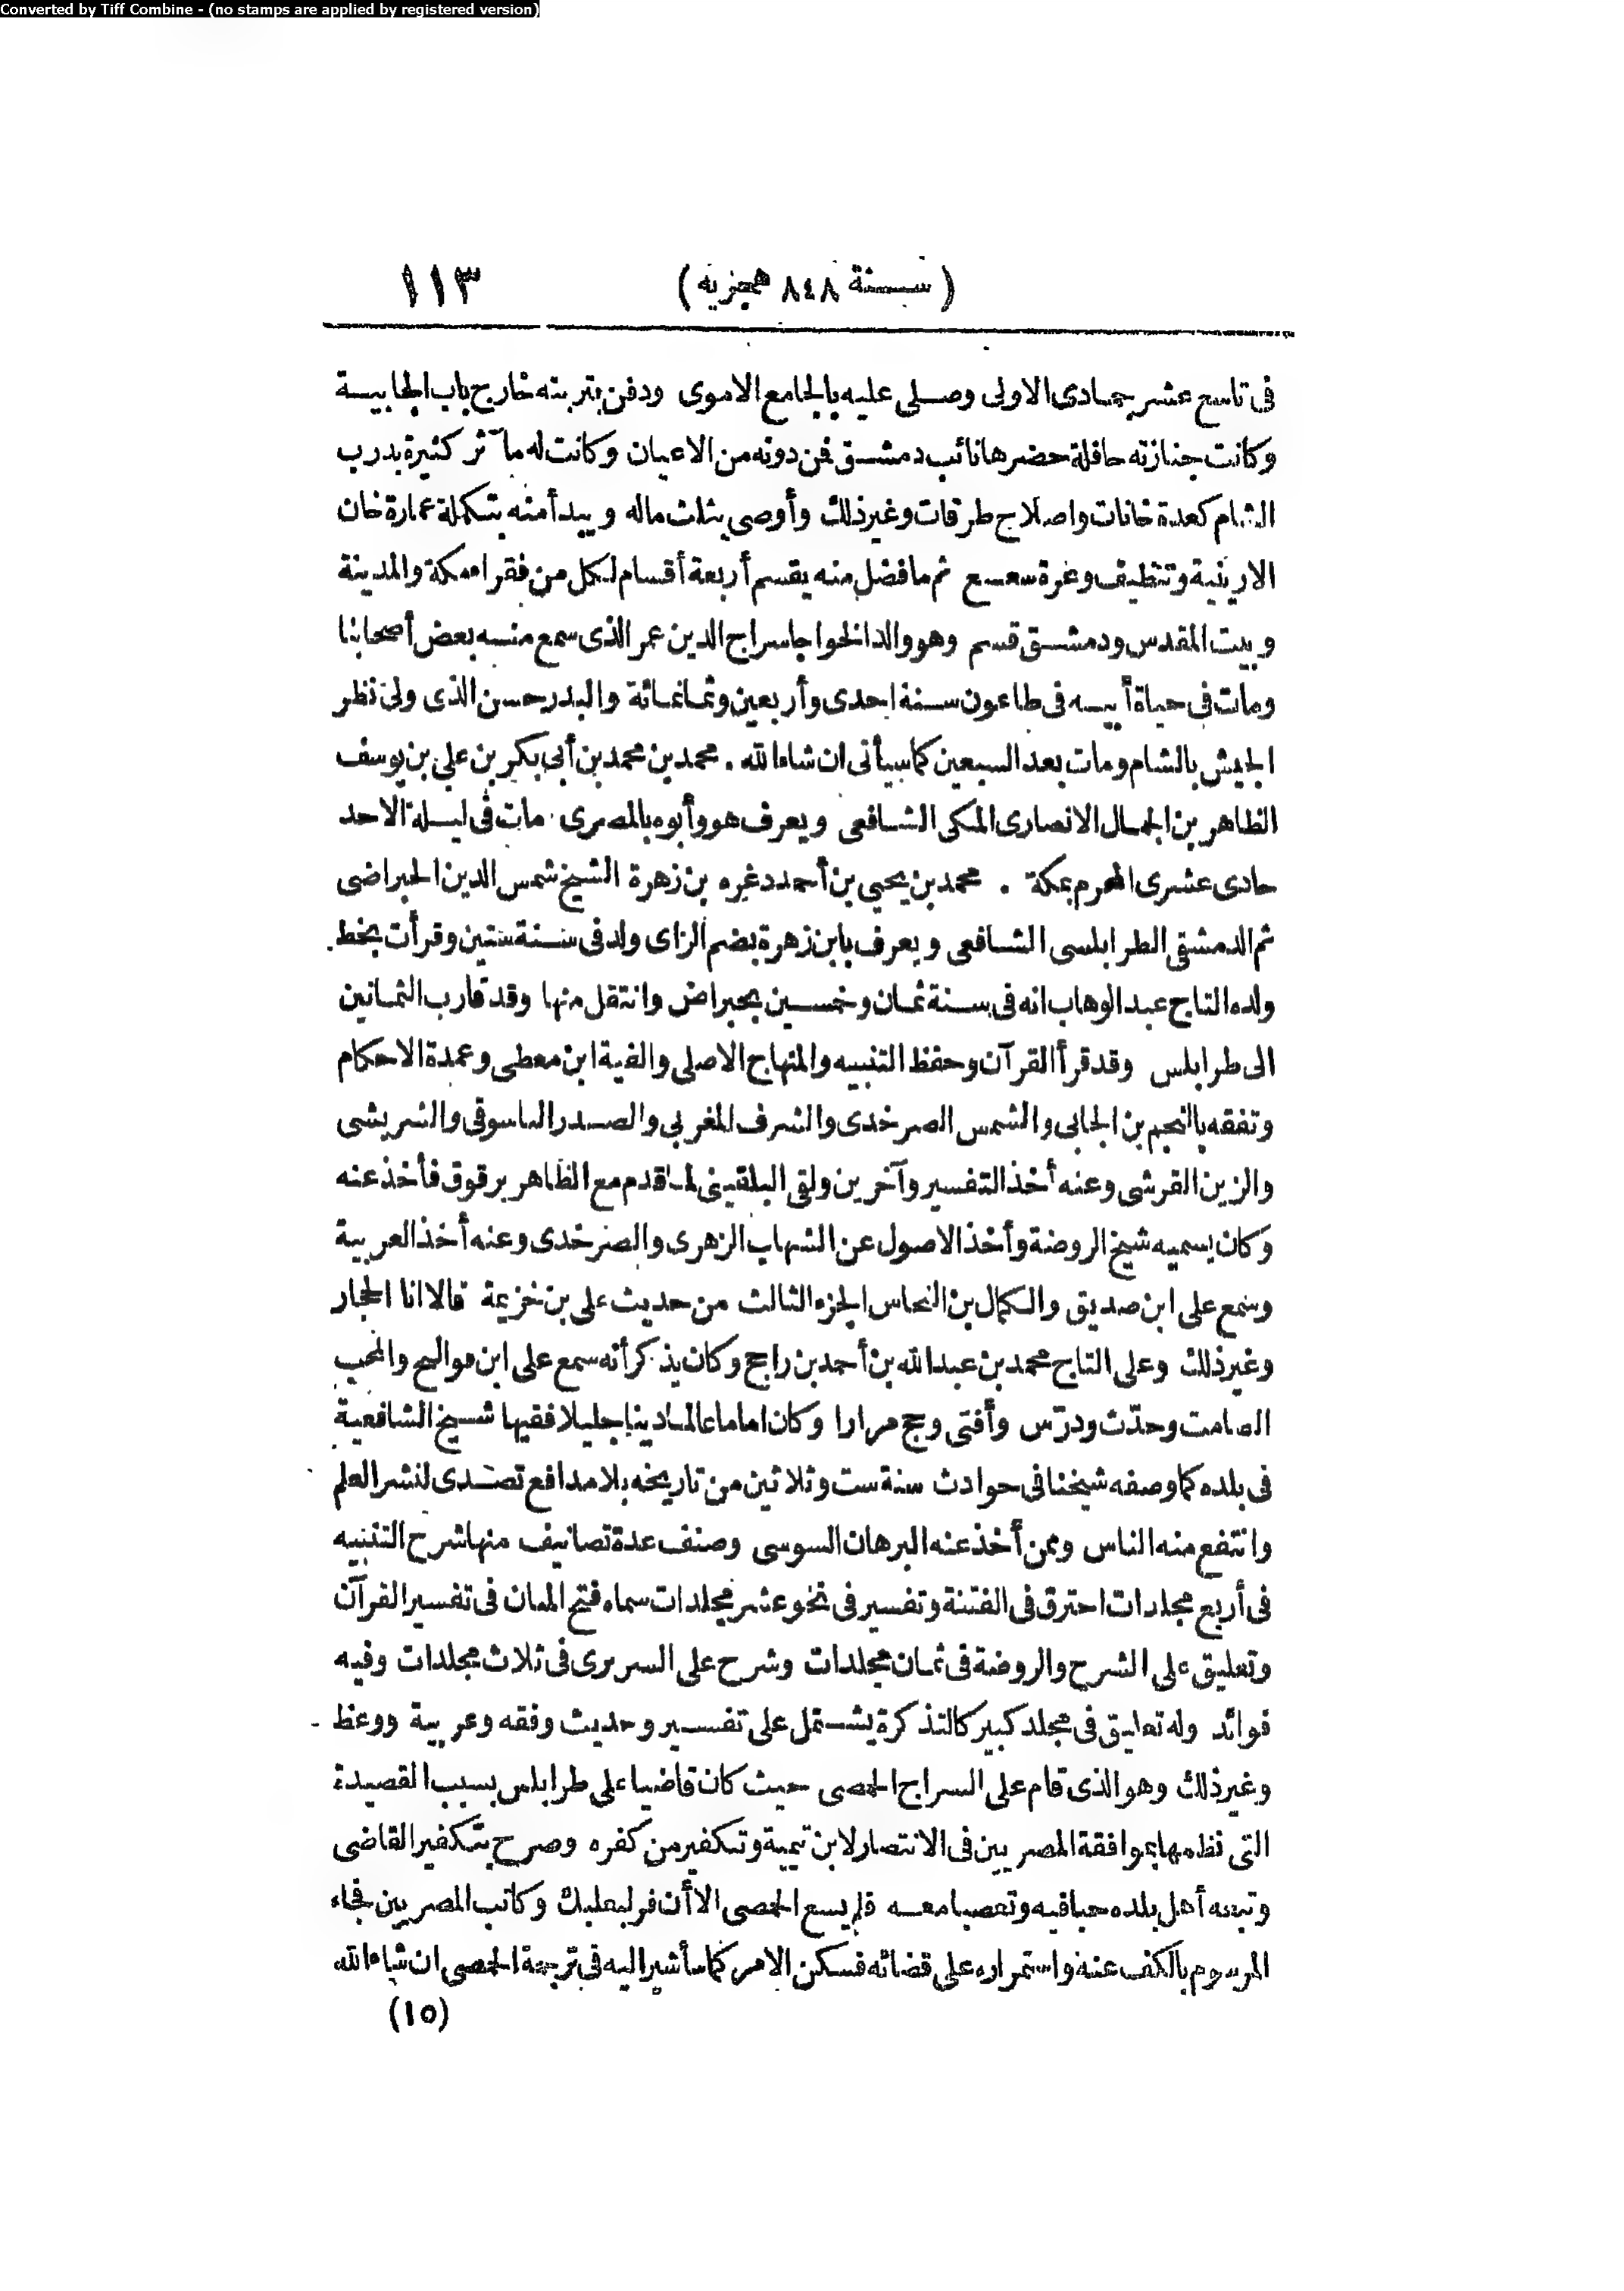 Converted by Tiff Combine - (no stamps are applied by registered version)
(سنة ٨٤٨ هجرية) ١١٣
فى تاسع عشر جمادى الاولى وصلى عليه بالجامع الاموى ودفن بتربته خارج باب الجابية
وكانت جنازته حافلة حضرها نائب دمشق فمن دونه من الاعيان وكانت له مآثر كثيرة بدرب
الشام كعدة خانات واصلاح طرقات وغير ذلك وأوصى بثلث ماله ويبدأ منه بتكملة عمارة خان
الارينبة وتنظيف وعرة سعسع ثم ما فضل منه يقسم أربعة أقسام لكل من فقراء مكة والمدينة
وبيت المقدس ودمشق قسم وهو والد الخواجا سراج الدين عمر الذى سمع منه بعض أصحابنا
ومات فى حياة أبيه فى طاعون سنة احدى وأربعين وثمانمائة والبدر حسن الذى ولى نظر
الجيش بالشام ومات بعد السبعين كما سيأتى ان شاء الله . محمد بن محمد بن أبى بكر بن على بن يوسف
الظاهر بن الجمال الانصارى المكى الشافعى ويعرف هو وأبوه بالمصرى مات فى ليلة الاحد
حادى عشرى المحرم بمكة . محمد بن يحيى بن أحمد دغره بن زهرة الشيخ شمس الدين الحبراضى
ثم الدمشقى الطرابلسى الشافعى ويعرف بابن زهرة بضم الزاى ولد فى سنة ستين وقرأت بخط
ولده التاج عبد الوهاب انه فى سنة ثمان وخمسين بحبراض وانتقل منها وقد قارب الثمانين
الى طرابلس وقد قرأ القرآن وحفظ التنبيه والمنهاج الاصلى والفية ابن معطى وعمدة الاحكام
وتفقه بالنجم بن الجابى والشمس الصرخدى والشرف المغربى والصدر الياسوفى والشريشى
والزين القرشى وعنه أخذ التفسير وآخرين ولقى البلقينى لما قدم مع الظاهر برقوق فأخذ عنه
وكان يسميه شيخ الروضة وأخذ الاصول عن الشهاب الزهرى والصرخدى وعنه أخذ العربية
وسمع على ابن صديق والكمال بن النحاس الجزء الثالث من حديث على بن خزيمة قالا انا الحجار
وغير ذلك وعلى التاج محمد بن عبد الله بن أحمد بن راجح وكان يذكر أنه سمع على ابن قوالح والمحب
الصامت وحدّث ودرّس وأفتى وحج مرارا وكان اماما عالما دينا جليلا فقيها شيخ الشافعية
فى بلده كما وصفه شيخنا فى حوادث سنة ست وثلاثين من تاريخه بلا مدافع تصدى لنشر العلم
وانتفع منه الناس وممن أخذ عنه البرهان السوسى وصنف عدة تصانيف منها شرح التنبيه
فى أربع مجلدات احترق فى الفتنة وتفسير فى نحو عشر مجلدات سماه فتح المنان فى تفسير القرآن
وتعليق على الشرح والروضة فى ثمان مجلدات وشرح على السربرى فى ثلاث مجلدات وفيه
فوائد وله تعليق فى مجلد كبير كالتذكرة يشتمل على تفسير وحديث وفقه وعربية ووعظ
وغير ذلك وهو الذى قام على السراج الحمصى حيث كان قاضيا على طرابلس بسبب القصيدة
التى نظمها بموافقة المصريين فى الانتصار لابن تيمية وتكفير من كفره وصرح بتكفير القاضى
وتبعه أهل بلده حبا فيه وتعصبا معه فلم يسع الحمصى الا أن فر لبعلبك وكاتب المصريين فجاء
المرسوم بالكف عنه واستمراره على قضائه فسكن الامر كما سأشير اليه فى ترجمة الحمصى ان شاء الله
(١٥)